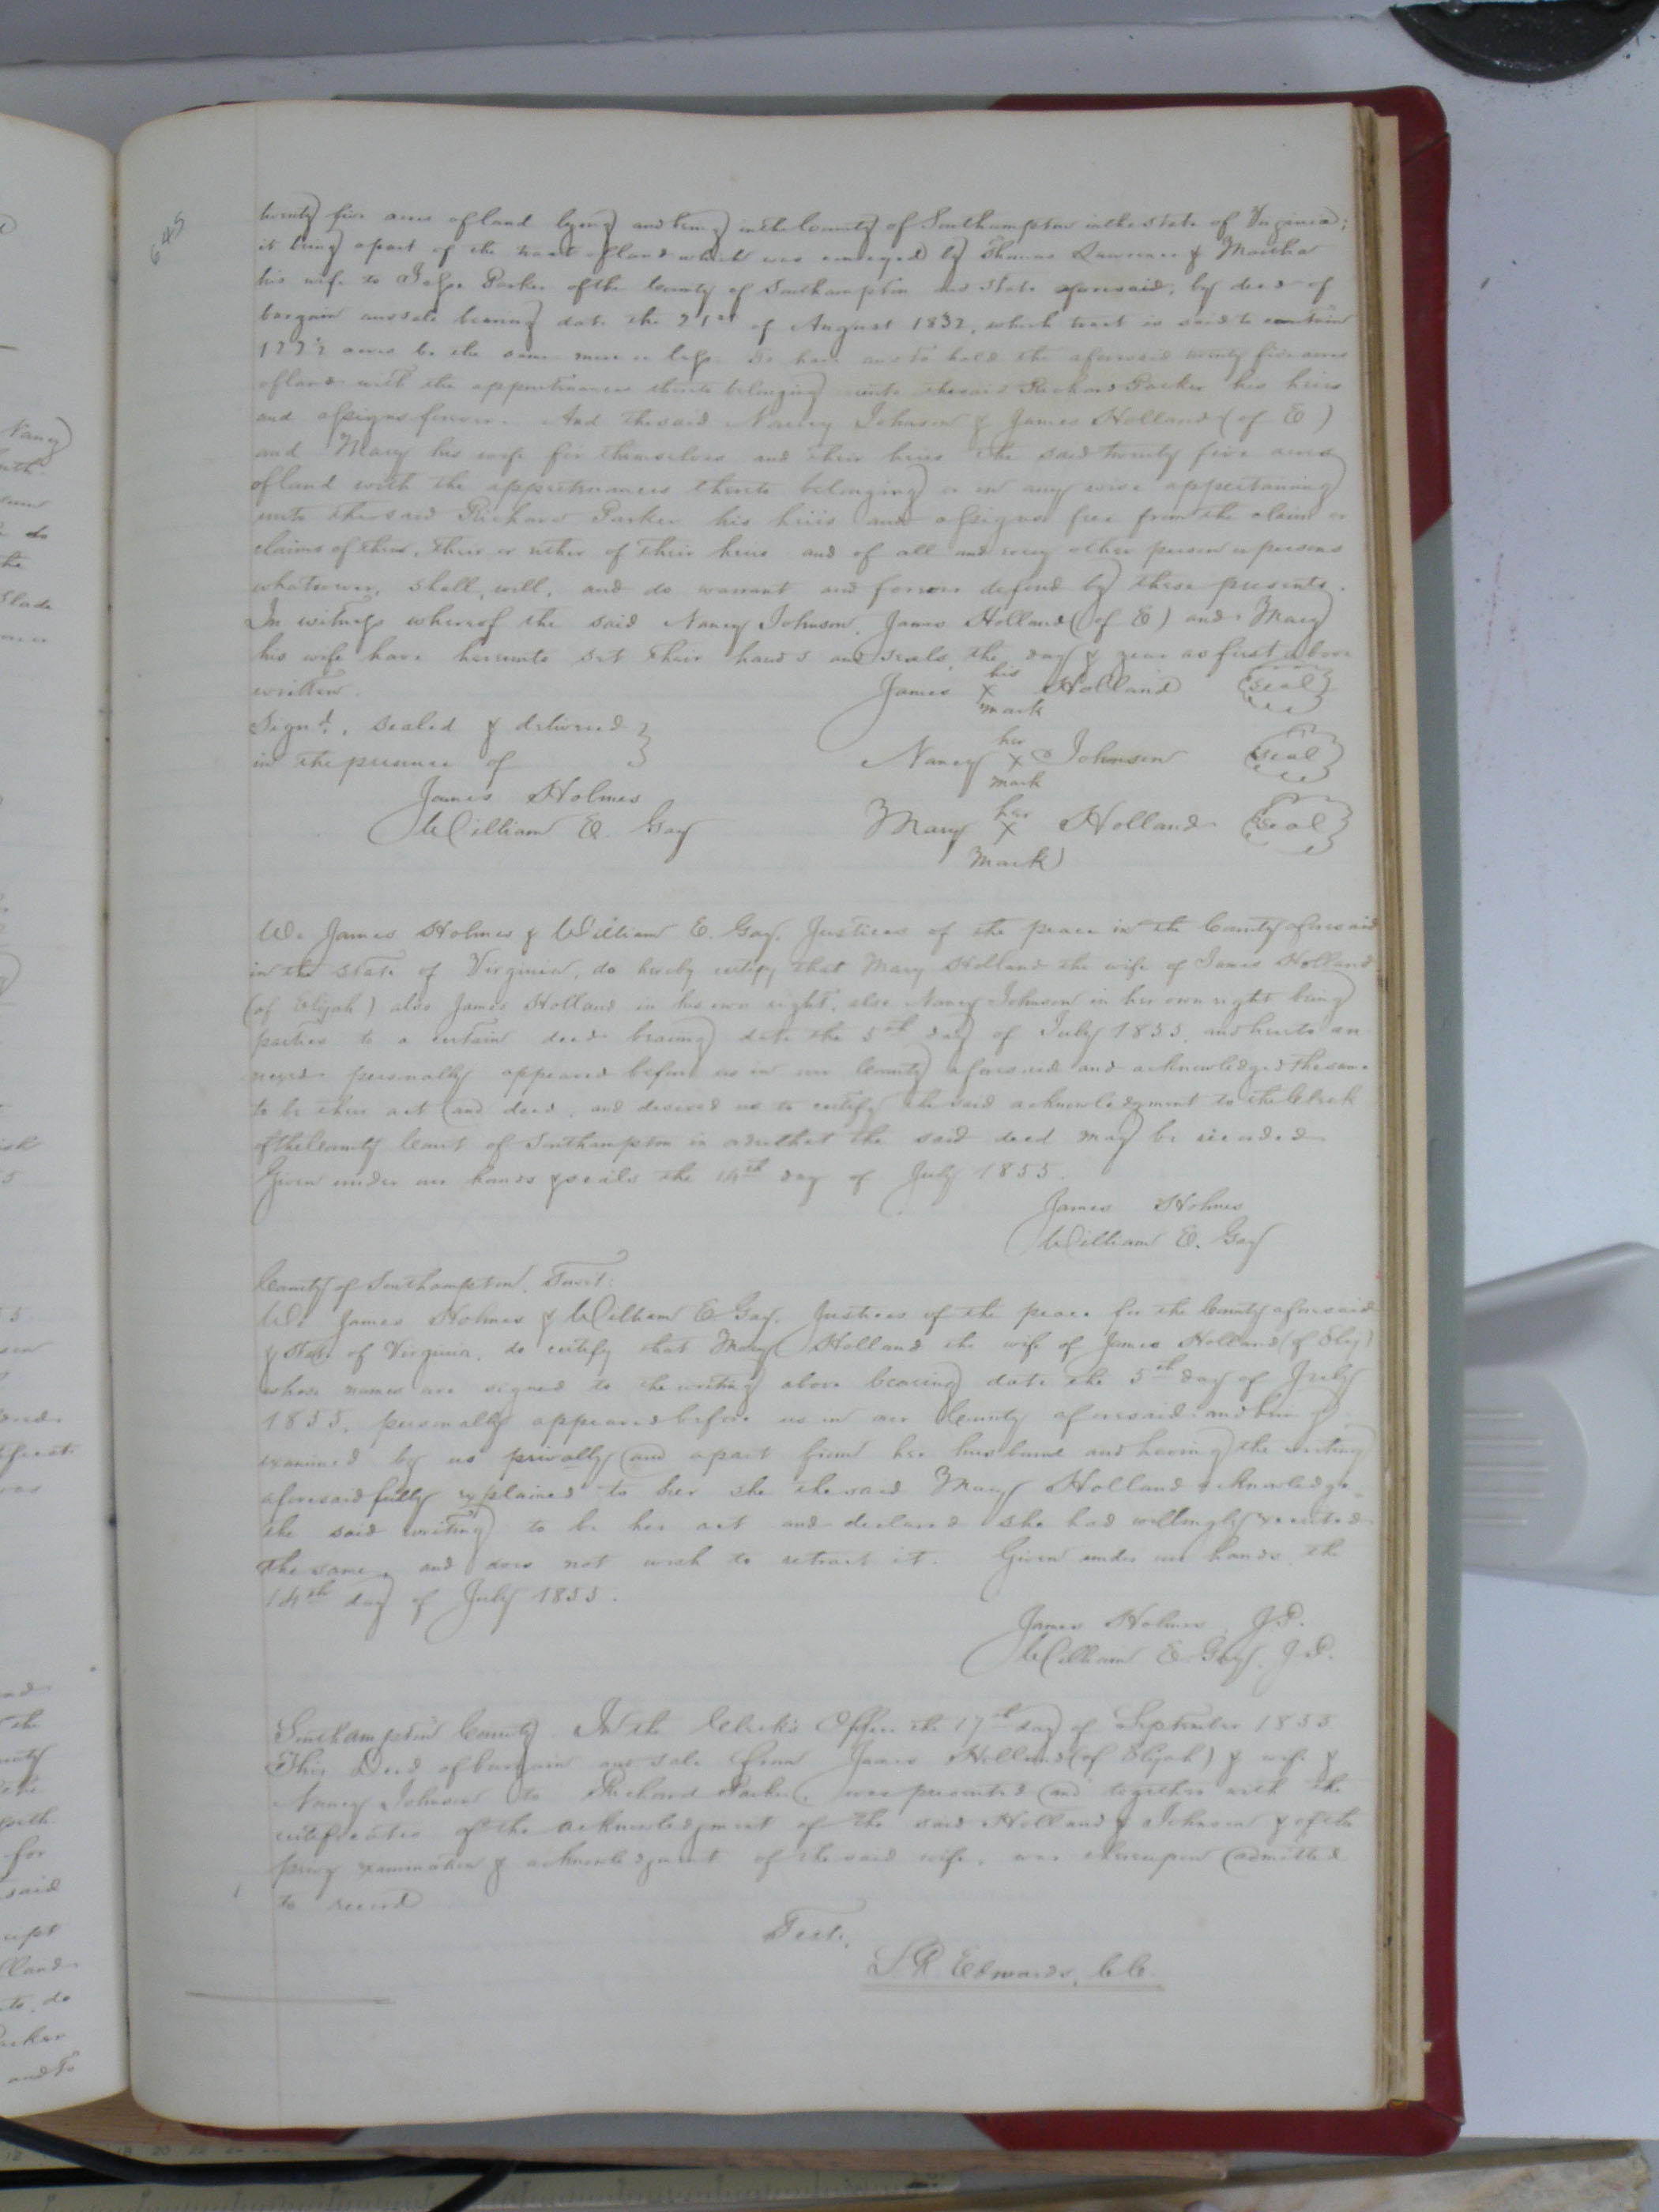 645
twenty five acres of land lying and being in the County of Southampton in the State of Virginia;
it being apart of the tract of land which was conveyed by Thomas Lawrence & Martha
his wife to Parker of the County of Southampton and State aforesaid, by deed of
bargain and sale bearing date the 21st of August 1832, which tract is said to contain
acres be the same more or less To have and to hold the aforesaid twenty five acres
of land with the appurtenances thereto belonging unto the said Richard Parker his heirs
and assigns forever. And the said Nancy Johnson & James Holland (of E)
and Mary his wife for themselves and their heirs the said twenty five acres
of land with the appurtenances thereto belonging or in any wise appertaining
unto the said Richard Parker his heirs and assigns free from the claim or
claims of them, their or either of their heirs and of all and every other person or persons
whatsoever, shall, will, and do warrant and forever defend by these presents.
In witness whereof the said Nancy Johnson, James Holland (of E) and Mary
his wife have hereunto set their hands and seals, the day & year as first above
written.
James his X mark Holland seal
Signd., sealed & delivered
in the presence of
Nancy her X mark Johnson seal
James Holmes
William E. Gay
Mary her X mark Holland seal
We James Holmes & William E. Gay, Justices of the peace in the County aforesaid
in the State of Virginia, do hereby certify that Mary Holland the wife of James Holland
(of Elijah) also James Holland in his own right, also Nancy Johnson in her own right being
parties to a certain deed bearing date the 5th day of July 1855, and hereto an
nexed personally appeared before us in our County aforesaid and acknowledged the same
to be their act and deed, and desired us to certify the said acknowledgment to the Clerk
of the County Court of Southampton in order that the said deed may be recorded
Given under our hands & seals the 14th day of July 1855.
James Holmes
William E. Gay
County of Southampton, Towit:
We James Holmes & William E Gay, Justices of the peace for the County aforesaid
& State of Virginia, do certify that Mary Holland the wife of James Holland (of Elij)
whose names are signed to the writing above bearing date the 5th day of July
1855, personally appeared before us in our County aforesaid and being
examined by us privally and apart from her husband and having the writing
aforesaid fully explained to her she the said Mary Holland acknowledge
the said writing to be her act and declared she had willingly executed
the same, and does not wish to retract it. Given under our hands the
14th day of July 1855.
James Holmes, J.P.
William E Gay, J.P.
Southampton County In the Clerk's Office the 17th day of September 1855
This Deed of bargain and sale from James Holland (of Elijah) & wife &
Nancy Johnson to Richard Parker, was presented and together with the
certificates of the acknowledgment of the said Holland & Johnson & of the
privy examination & acknowledgment of the said wife, was thereupon admitted
to record
Teste,
L R Edwards, C.C.